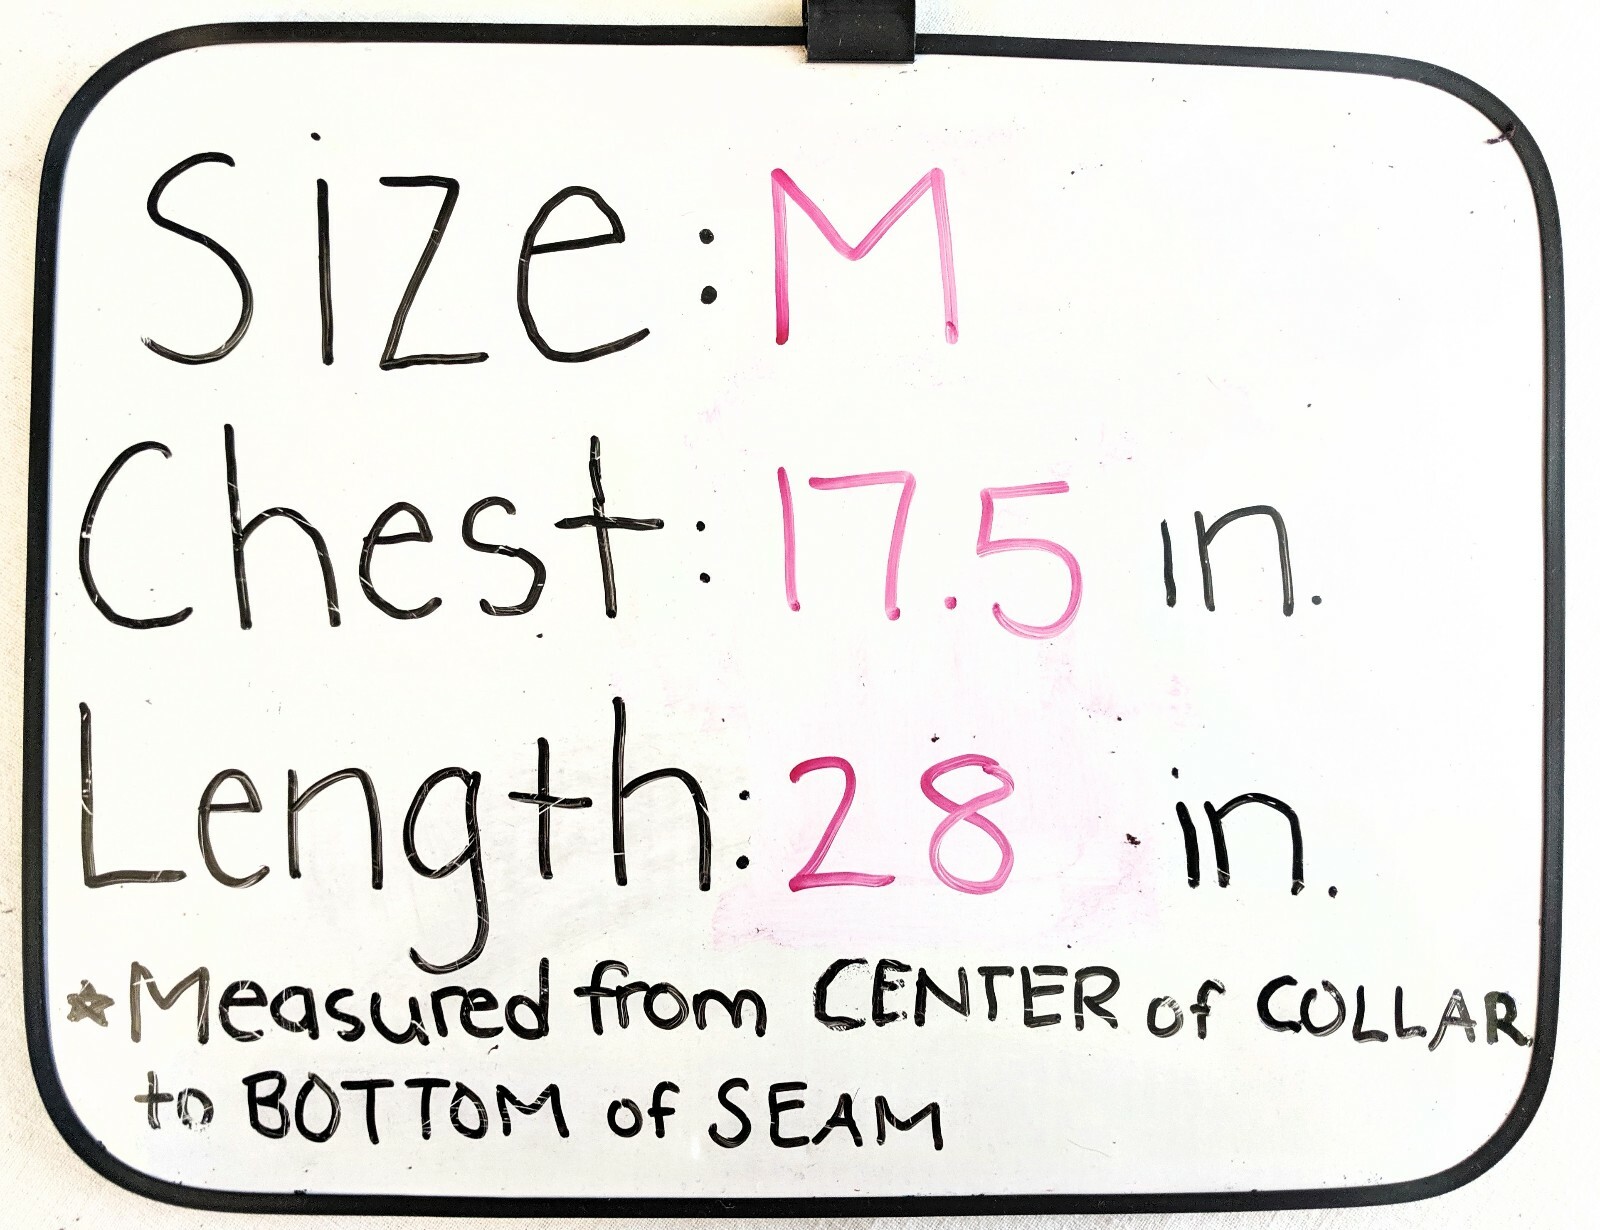 Size: M
Chest: 17.5 in.
Length: 28 in.
*Measured from CENTER of COLLAR
to BOTTOM of SEAM